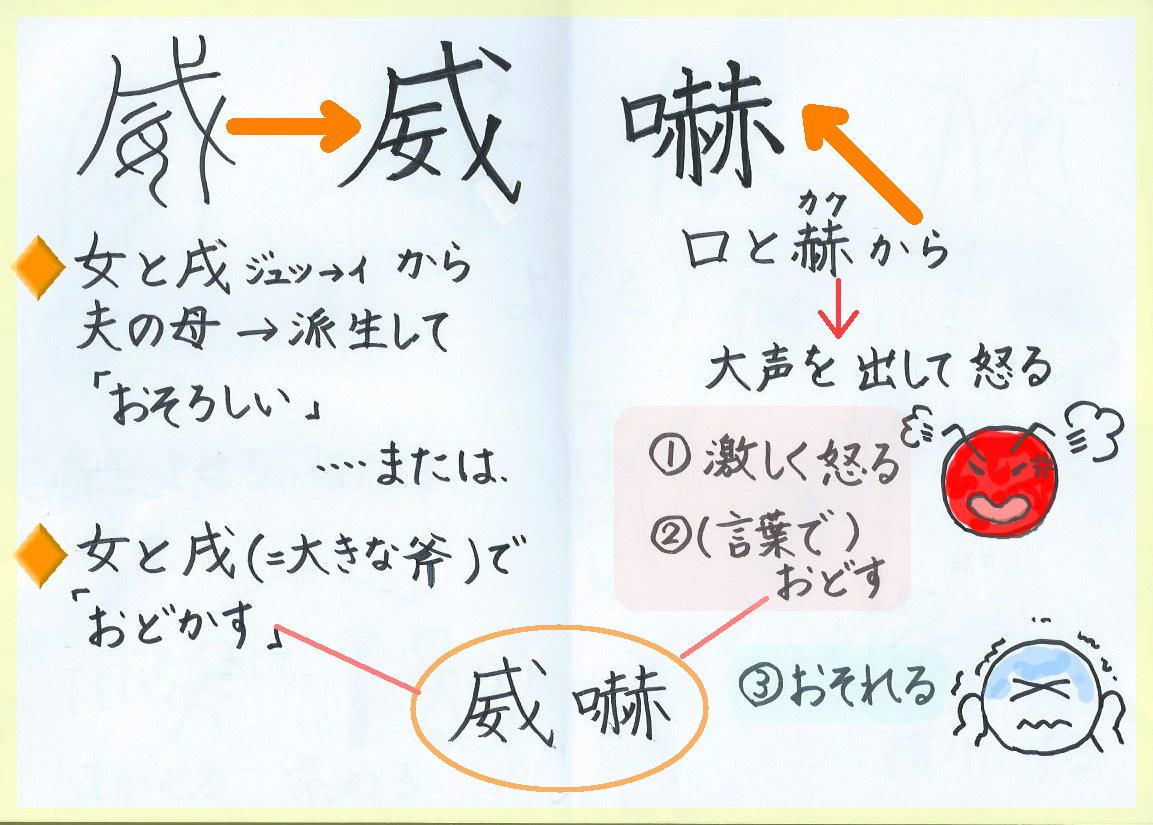 威 → 威
女と戌 ジュツ→イ から
夫の母 → 派生して
「おそろしい」
‥‥または、
女と戌(=大きな斧)で
「おどかす」
嚇
カク
口と赫から
大声を出して怒る
①激しく怒る
②(言葉で)
おどす
③おそれる
威嚇